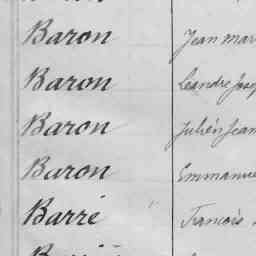 Baron Jean Mar
Baron Léandre Jose
Baron Julien Jean
Baron Emmanue
Barré François